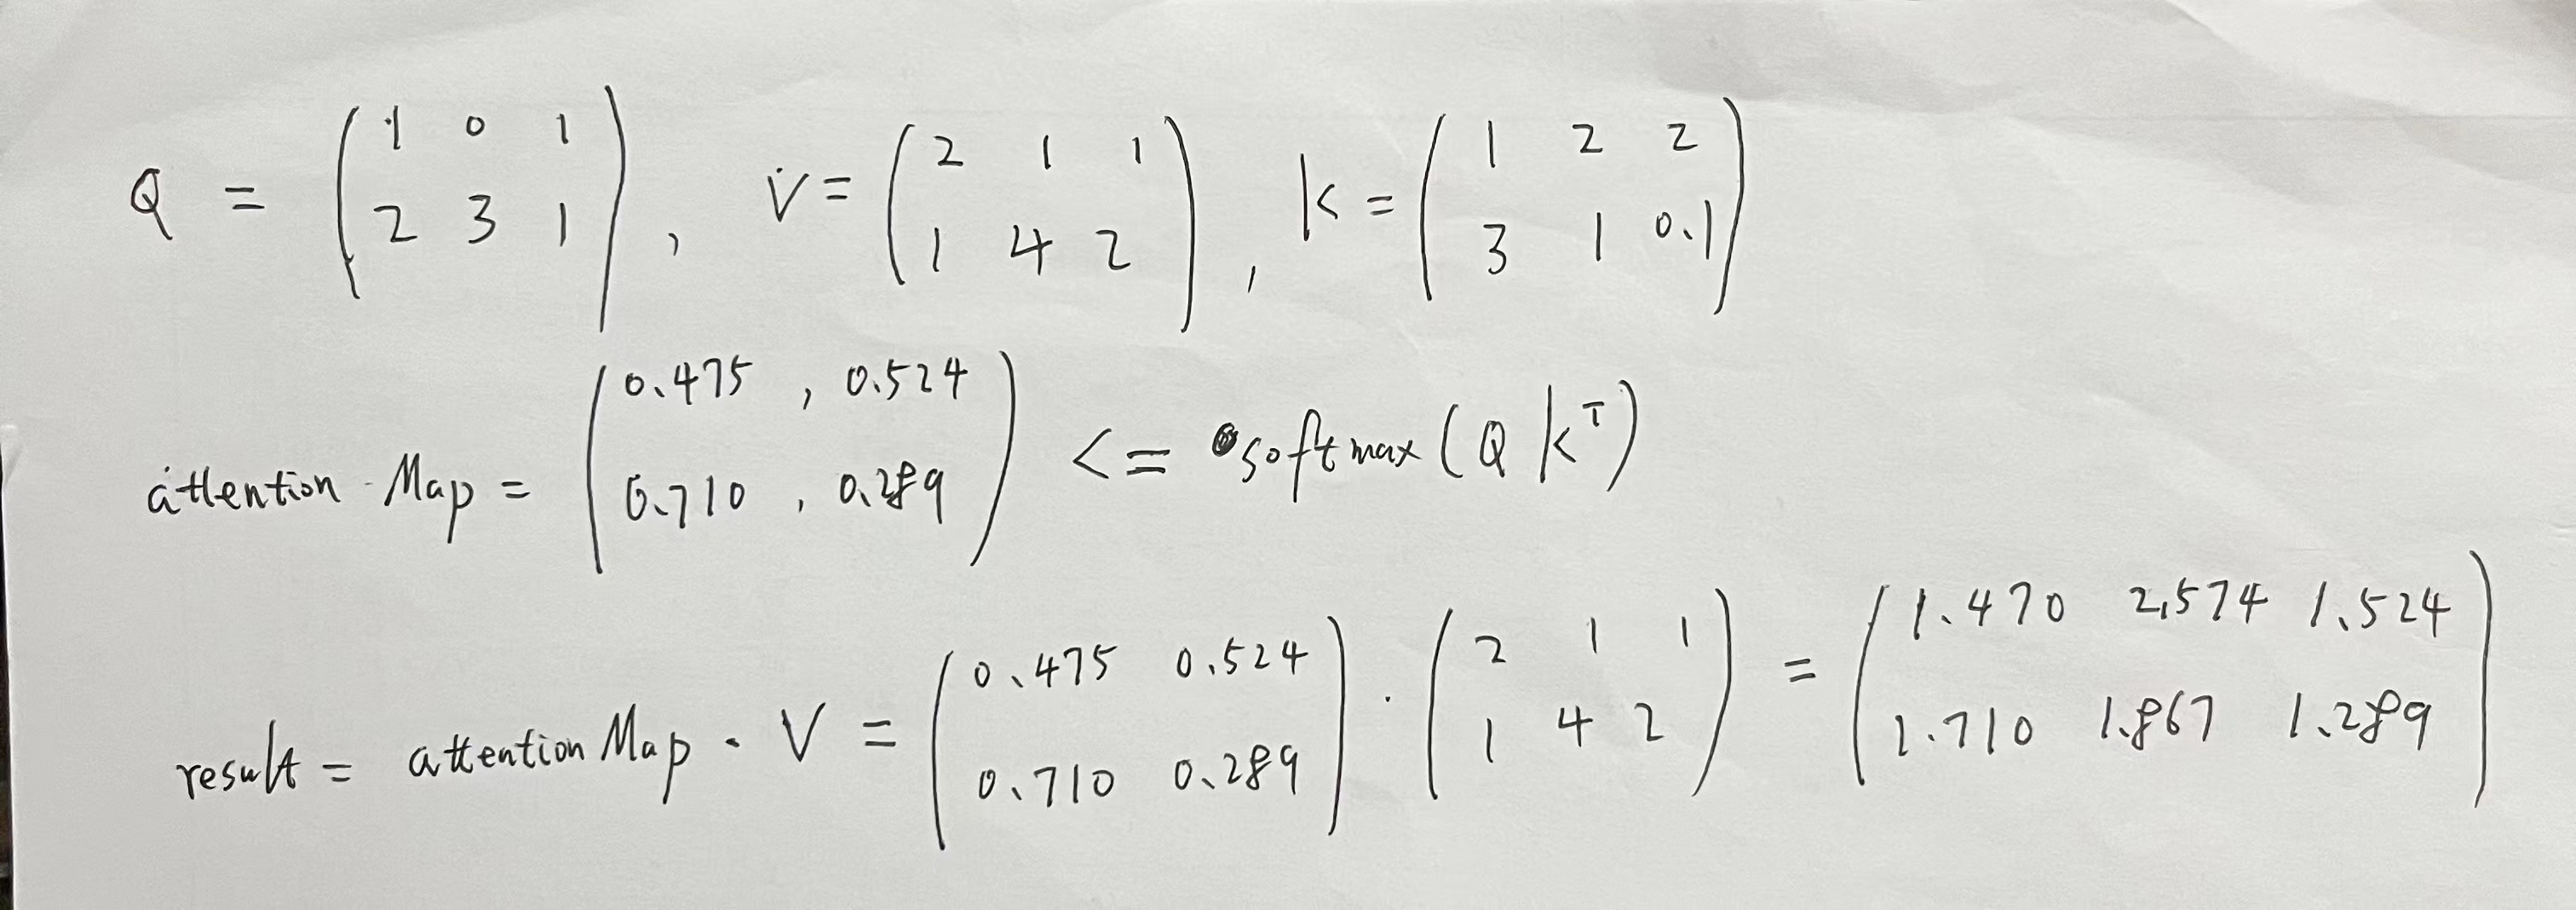 Q = ( 1 0 1
2 3 1 ) , V = ( 2 1 1
1 4 2 ) , K = ( 1 2 2
3 1 0.1 )
attention Map = ( 0.475 , 0.524
0.710 , 0.289 ) <= softmax ( Q K^T )
result = attention Map · V = ( 0.475 0.524
0.710 0.289 ) · ( 2 1 1
1 4 2 ) = ( 1.470 2.574 1.524
1.710 1.867 1.289 )